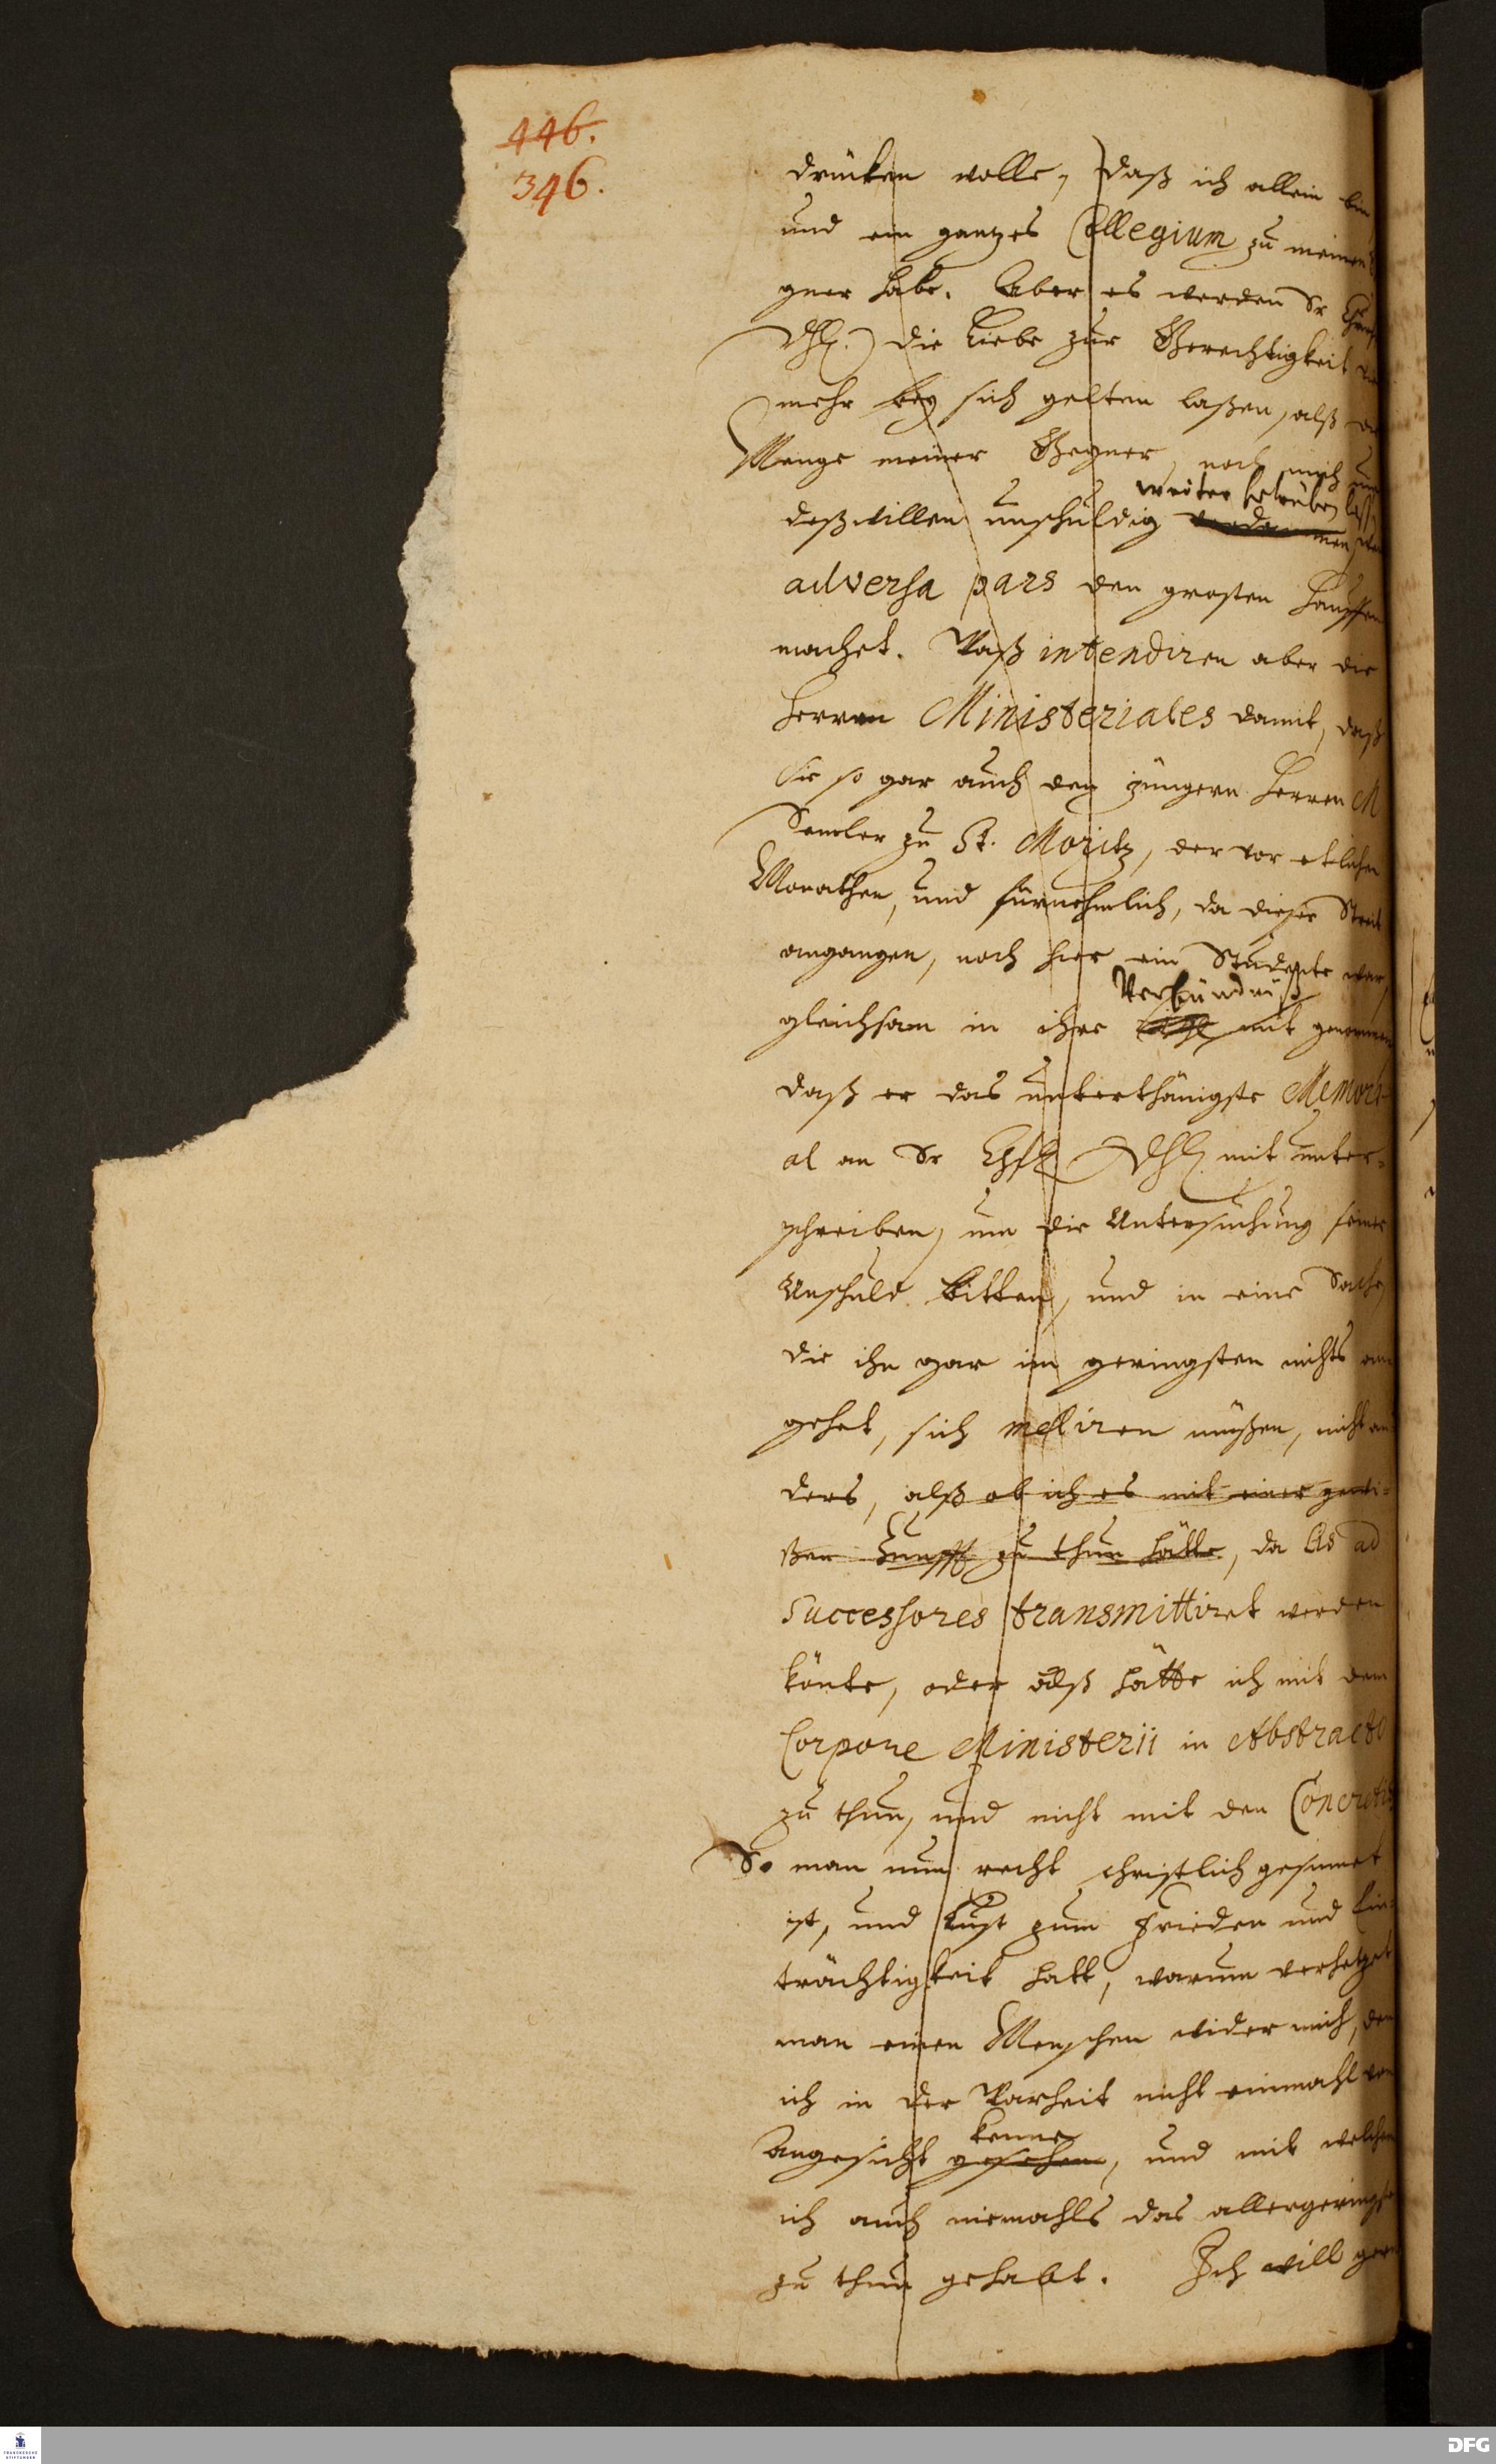 446.
346.
drücken wolle, daß ich allein bin
und ein gantzes Collegium zu meinen
gner habe. Aber es werden Sr Churf
Dhl. die Liebe zur Gerechtigkeit
mehr bey sich gelten laßen, alß
Menge meiner Gegner, noch mich um
weiter betrüben laß
deßwillen unschuldig verdammen,
adversa pars den grosten Hauffen
machet. Waß intendiren aber die
Herren Ministeriales damit, daß
Sie so gar auch den jüngern Herren M
Semler zu St. Moritz, der vor etlichen
Monathen, und fürnehmlich, da dieser Streit
angangen, noch hier ein Studente war,
Verbündniß
gleichsam in ihre mit genommen
daß er das unterthänigste Memori-
al an Sr Chfl Dhl. mit unter-
schreiben, um die Untersuchung seiner
Unschuld bitten, und in eine Sache,
die ihn gar im geringsten nichts an
gehet, sich meliren müßen, nicht an
ders, alß ob ich es mit einer gewi-
ßen Zunfft zu thun hätte, da lis ad
Successores transmittiret werden
könte, oder alß hätte ich mit dem
Corpore Ministerii in Abstracto
zu thun, und nicht mit den Concretis
So man nun recht christlich gesinnet
ist, und Lust zum Frieden und Ein-
trächtigkeit hatt, warum verhetzet
man einen Menschen wider mich, den
ich in der Warheit nicht einmahl von
kenne
Angesicht gesehen, und mit welchen
ich auch niemahls das allergeringste
zu thun gehabt. Ich will gern
FRANCKESCHE
STIFTUNGEN
DFG